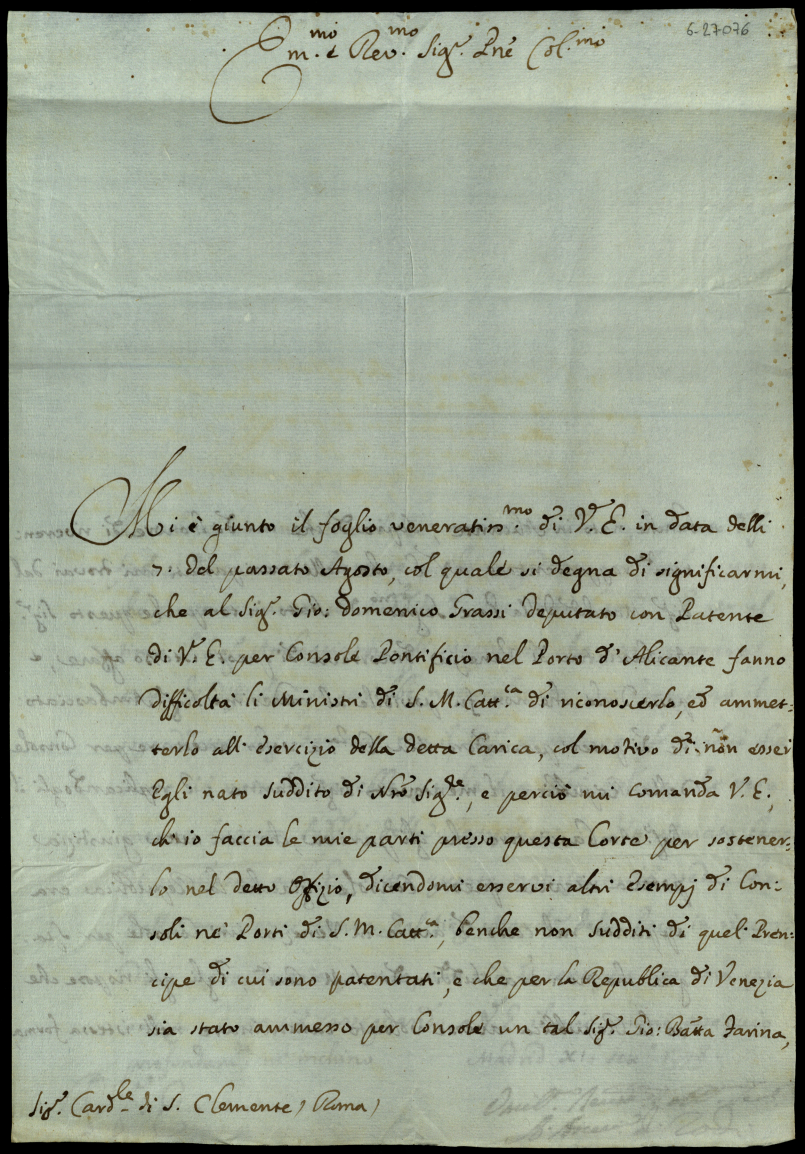 6-27076
Em.mo e Rev.mo Sig.r Pne Col.mo
Mi è giunto il foglio veneratiss.mo di V. E. in data delli
7. del passato Agosto, col quale si degna di significarmi,
che al Sig.r Gio: Domenico Grassi Deputato con Patente
di V. E. per Console Pontificio nel Porto d'Alicante fanno
difficoltà li Ministri di S. M. Catt.ca di riconoscerlo, ed ammet-
terlo all'Esercizio della detta Carica, col motivo di non esser
Egli nato suddito di Nro Sig.re, e perciò mi comanda V. E.,
ch'io faccia le mie parti presso questa Corte per sostener-
lo nel detto Offizio, dicendomi esservi altri Esempj di Con-
soli ne' Porti di S. M. Catt.ca, benche non Sudditi di quel Pren-
cipe di cui sono patentati, e che per la Republica di Venezia
sia stato ammesso per Console un tal Sig.r Gio: Batta Farina,
Sig.r Card.le di S. Clemente (Roma)